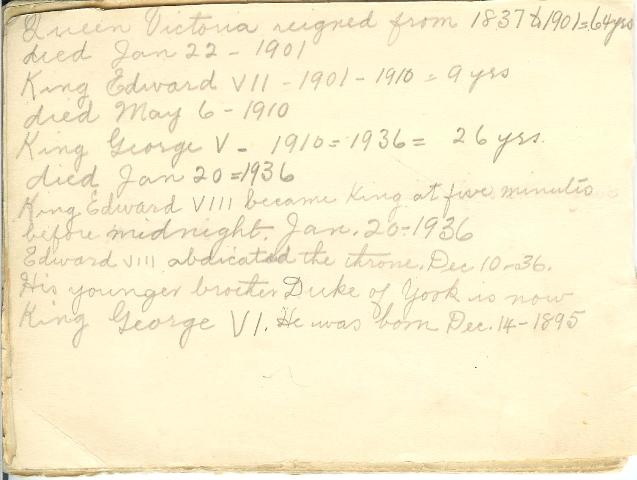 Queen Victoria reigned from 1837 to 1901=64yrs
died Jan 22 - 1901
King Edward VII - 1901 - 1910 = 9 yrs
died May 6 - 1910
King George V - 1910 = 1936 = 26 yrs.
died Jan 20=1936
King Edward VIII became King at five minutes
before midnight. Jan. 20=1936
Edward VIII abdicated the throne. Dec 10-36.
His younger brother Duke of Yook is now
King George VI. He was born Dec. 14-1895